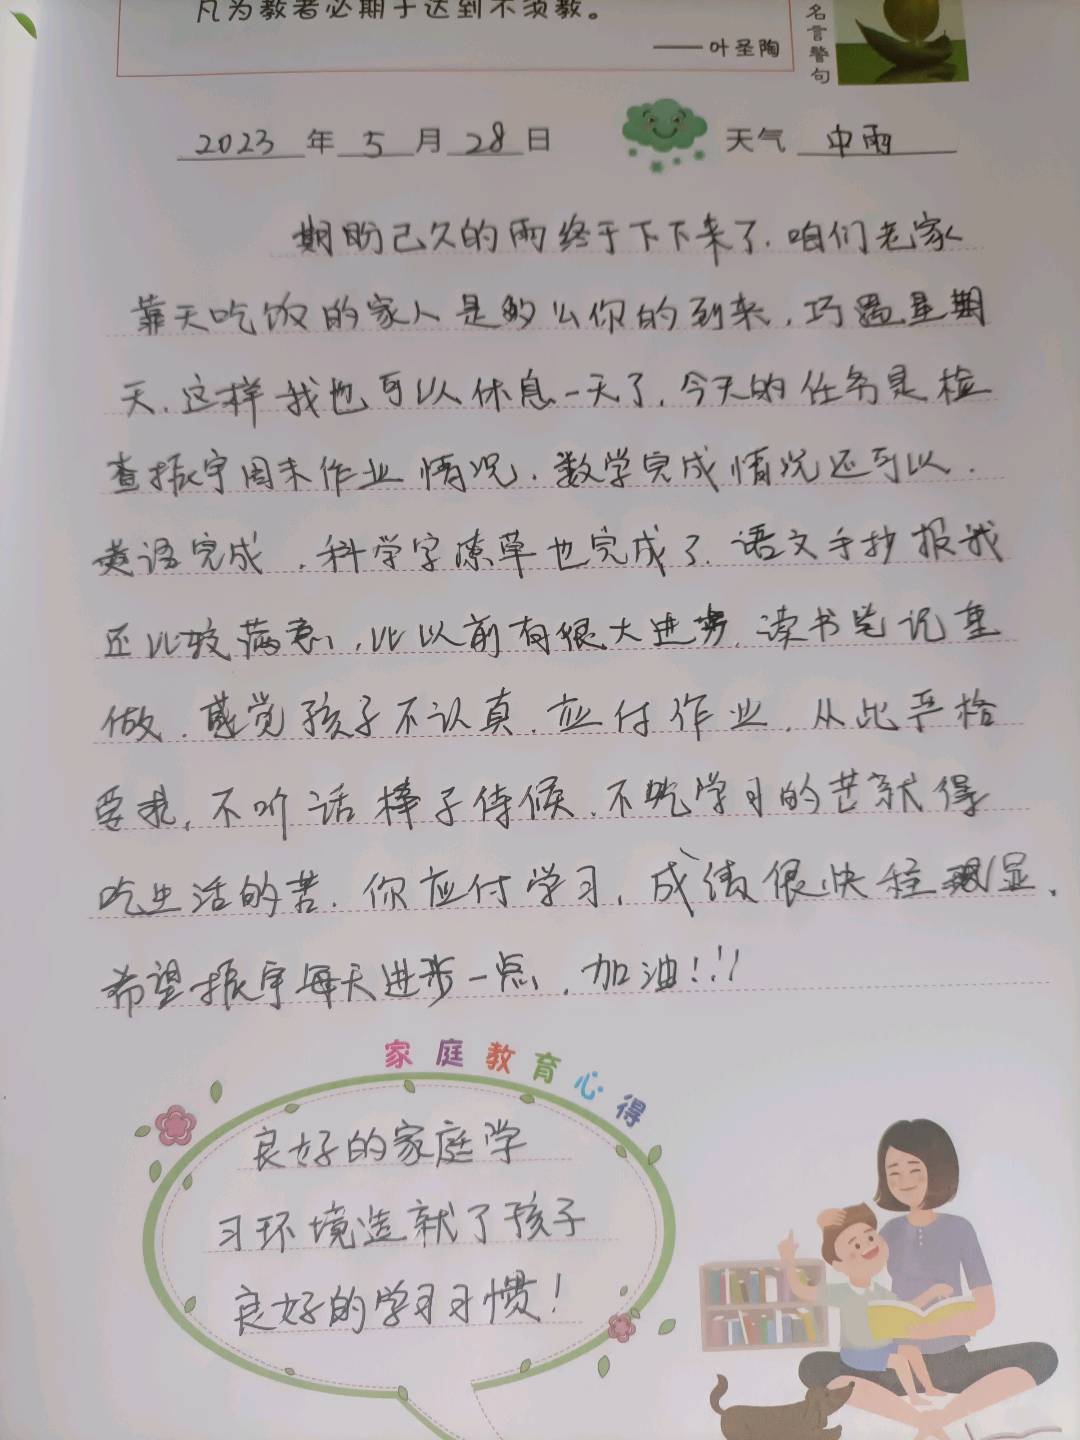 凡为教者必期于达到不须教。
——叶圣陶
名言警句
2023年5月28日 天气 中雨
期盼己久的雨终于下下来了.咱们老家
靠天吃饭的家人是多么你的到来,巧遇星期
天.这样我也可以休息一天了.今天的任务是检
查振宇周末作业情况.数学完成情况还可以.
英语完成.科学字潦草也完成了.语文手抄报我
还比较满意,比以前有很大进步.读书笔记重
做.感觉孩子不认真.应付作业.从此严格
要求,不听话棒子侍候.不吃学习的苦就得
吃生活的苦.你应付学习,成绩很快程现显.
希望振宇每天进步一点.加油!!!
家庭教育心得
良好的家庭学
习环境造就了孩子
良好的学习习惯!